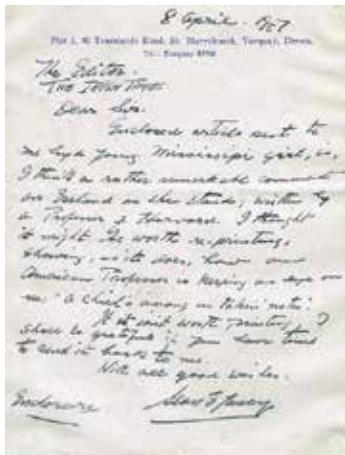 8 April. 1957
Flat 3, 40 Trumlands Road, St. Marychurch, Torquay, Devon.
Tel.: Torquay
The Editor.
THE IRISH TIMES
Dear Sir.
Enclosed article sent to
me by a young Mississippi girl, is,
I think a rather remarkable comment
on Ireland as she stands, written by
a Professor of Harvard. I thought
it might be worth re-printing,
showing, as it does, how an
American Professor is keeping an eye on
us. "A chiel's among us takin' notes".
If it isn't worth printing, I
shall be grateful if you have time
to send it back to me.
With all good wishes.
Enclosure Sean O'Casey